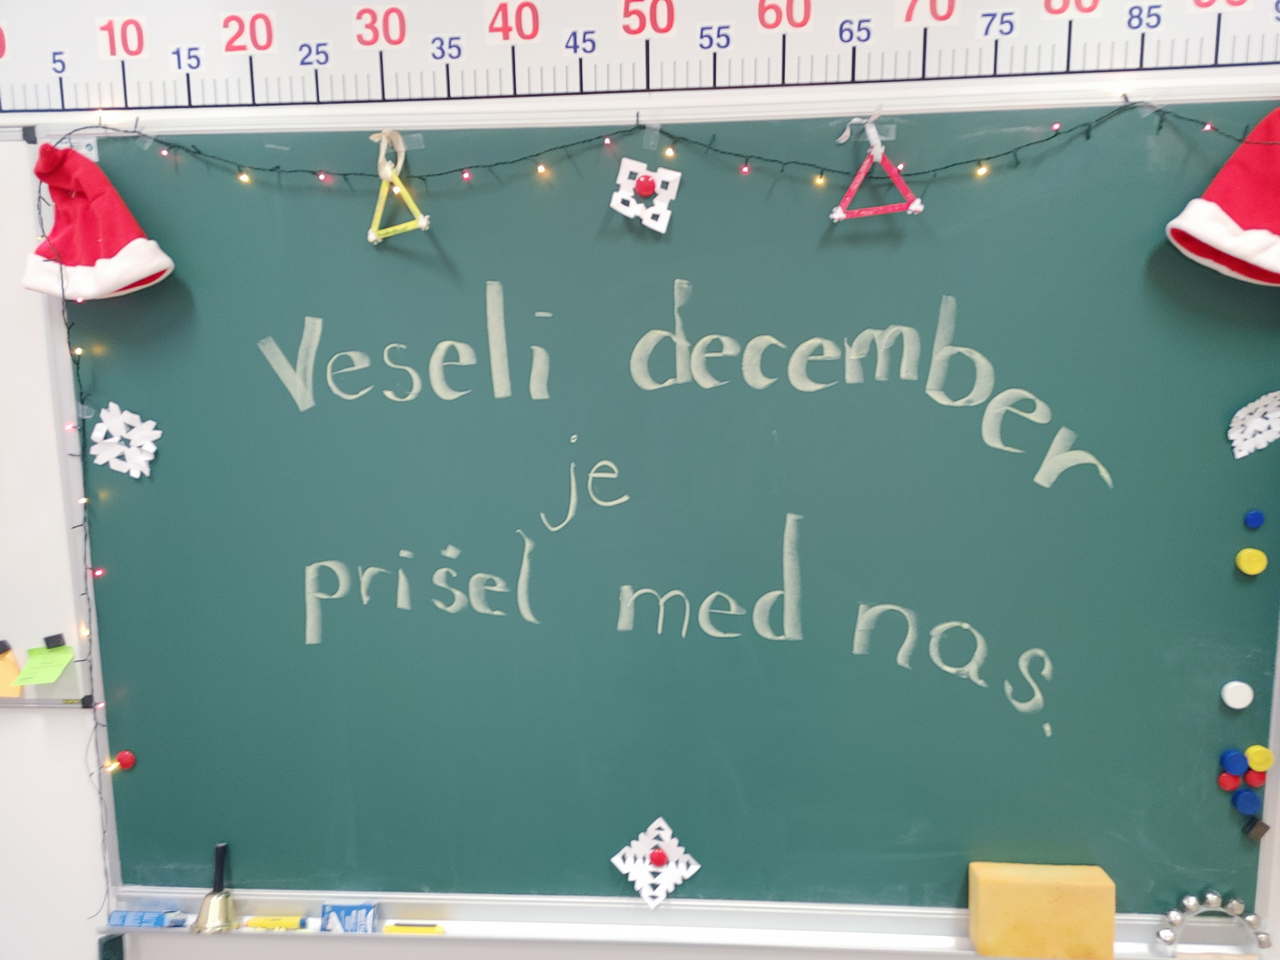 0 5 10 15 20 25 30 35 40 45 50 55 60 65 70 75 80 85 90
Veseli december
je
prišel med nas.